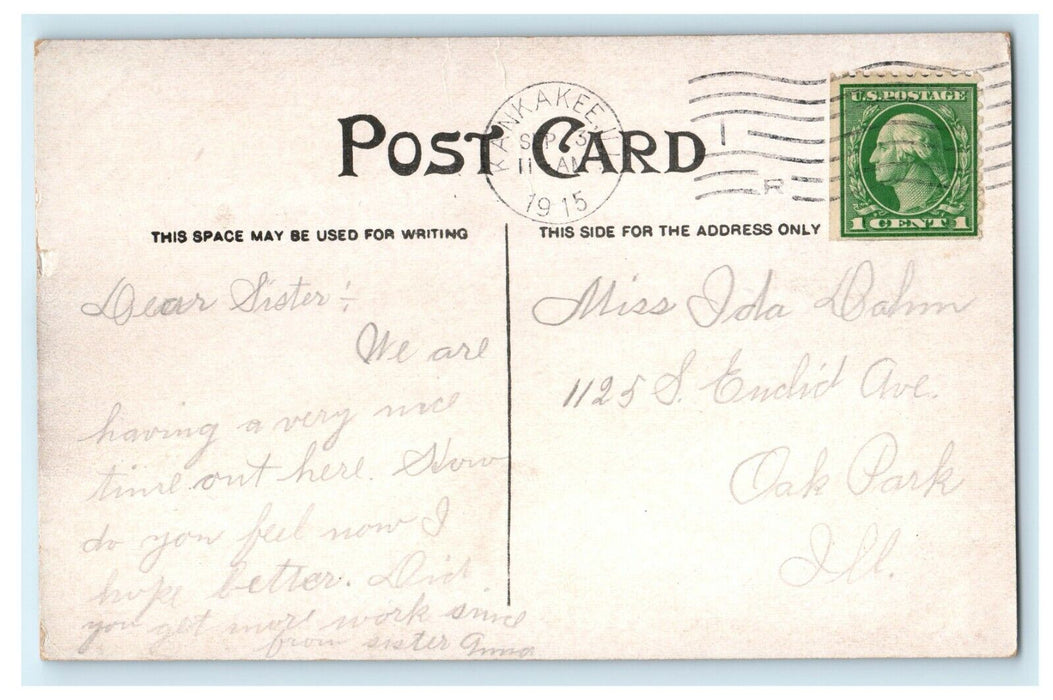 POST CARD
KANKAKEE, ILL
SEP 3
11 AM
1915
1
R
U.S. POSTAGE
1 CENT 1
THIS SPACE MAY BE USED FOR WRITING
THIS SIDE FOR THE ADDRESS ONLY
Dear Sister :-
We are
having a very nice
time out here. How
do you feel now I
hope better. Did
you get more work since
from sister Anna
Miss Ida Dahm
1125 S. Euclid Ave.
Oak Park
Ill.